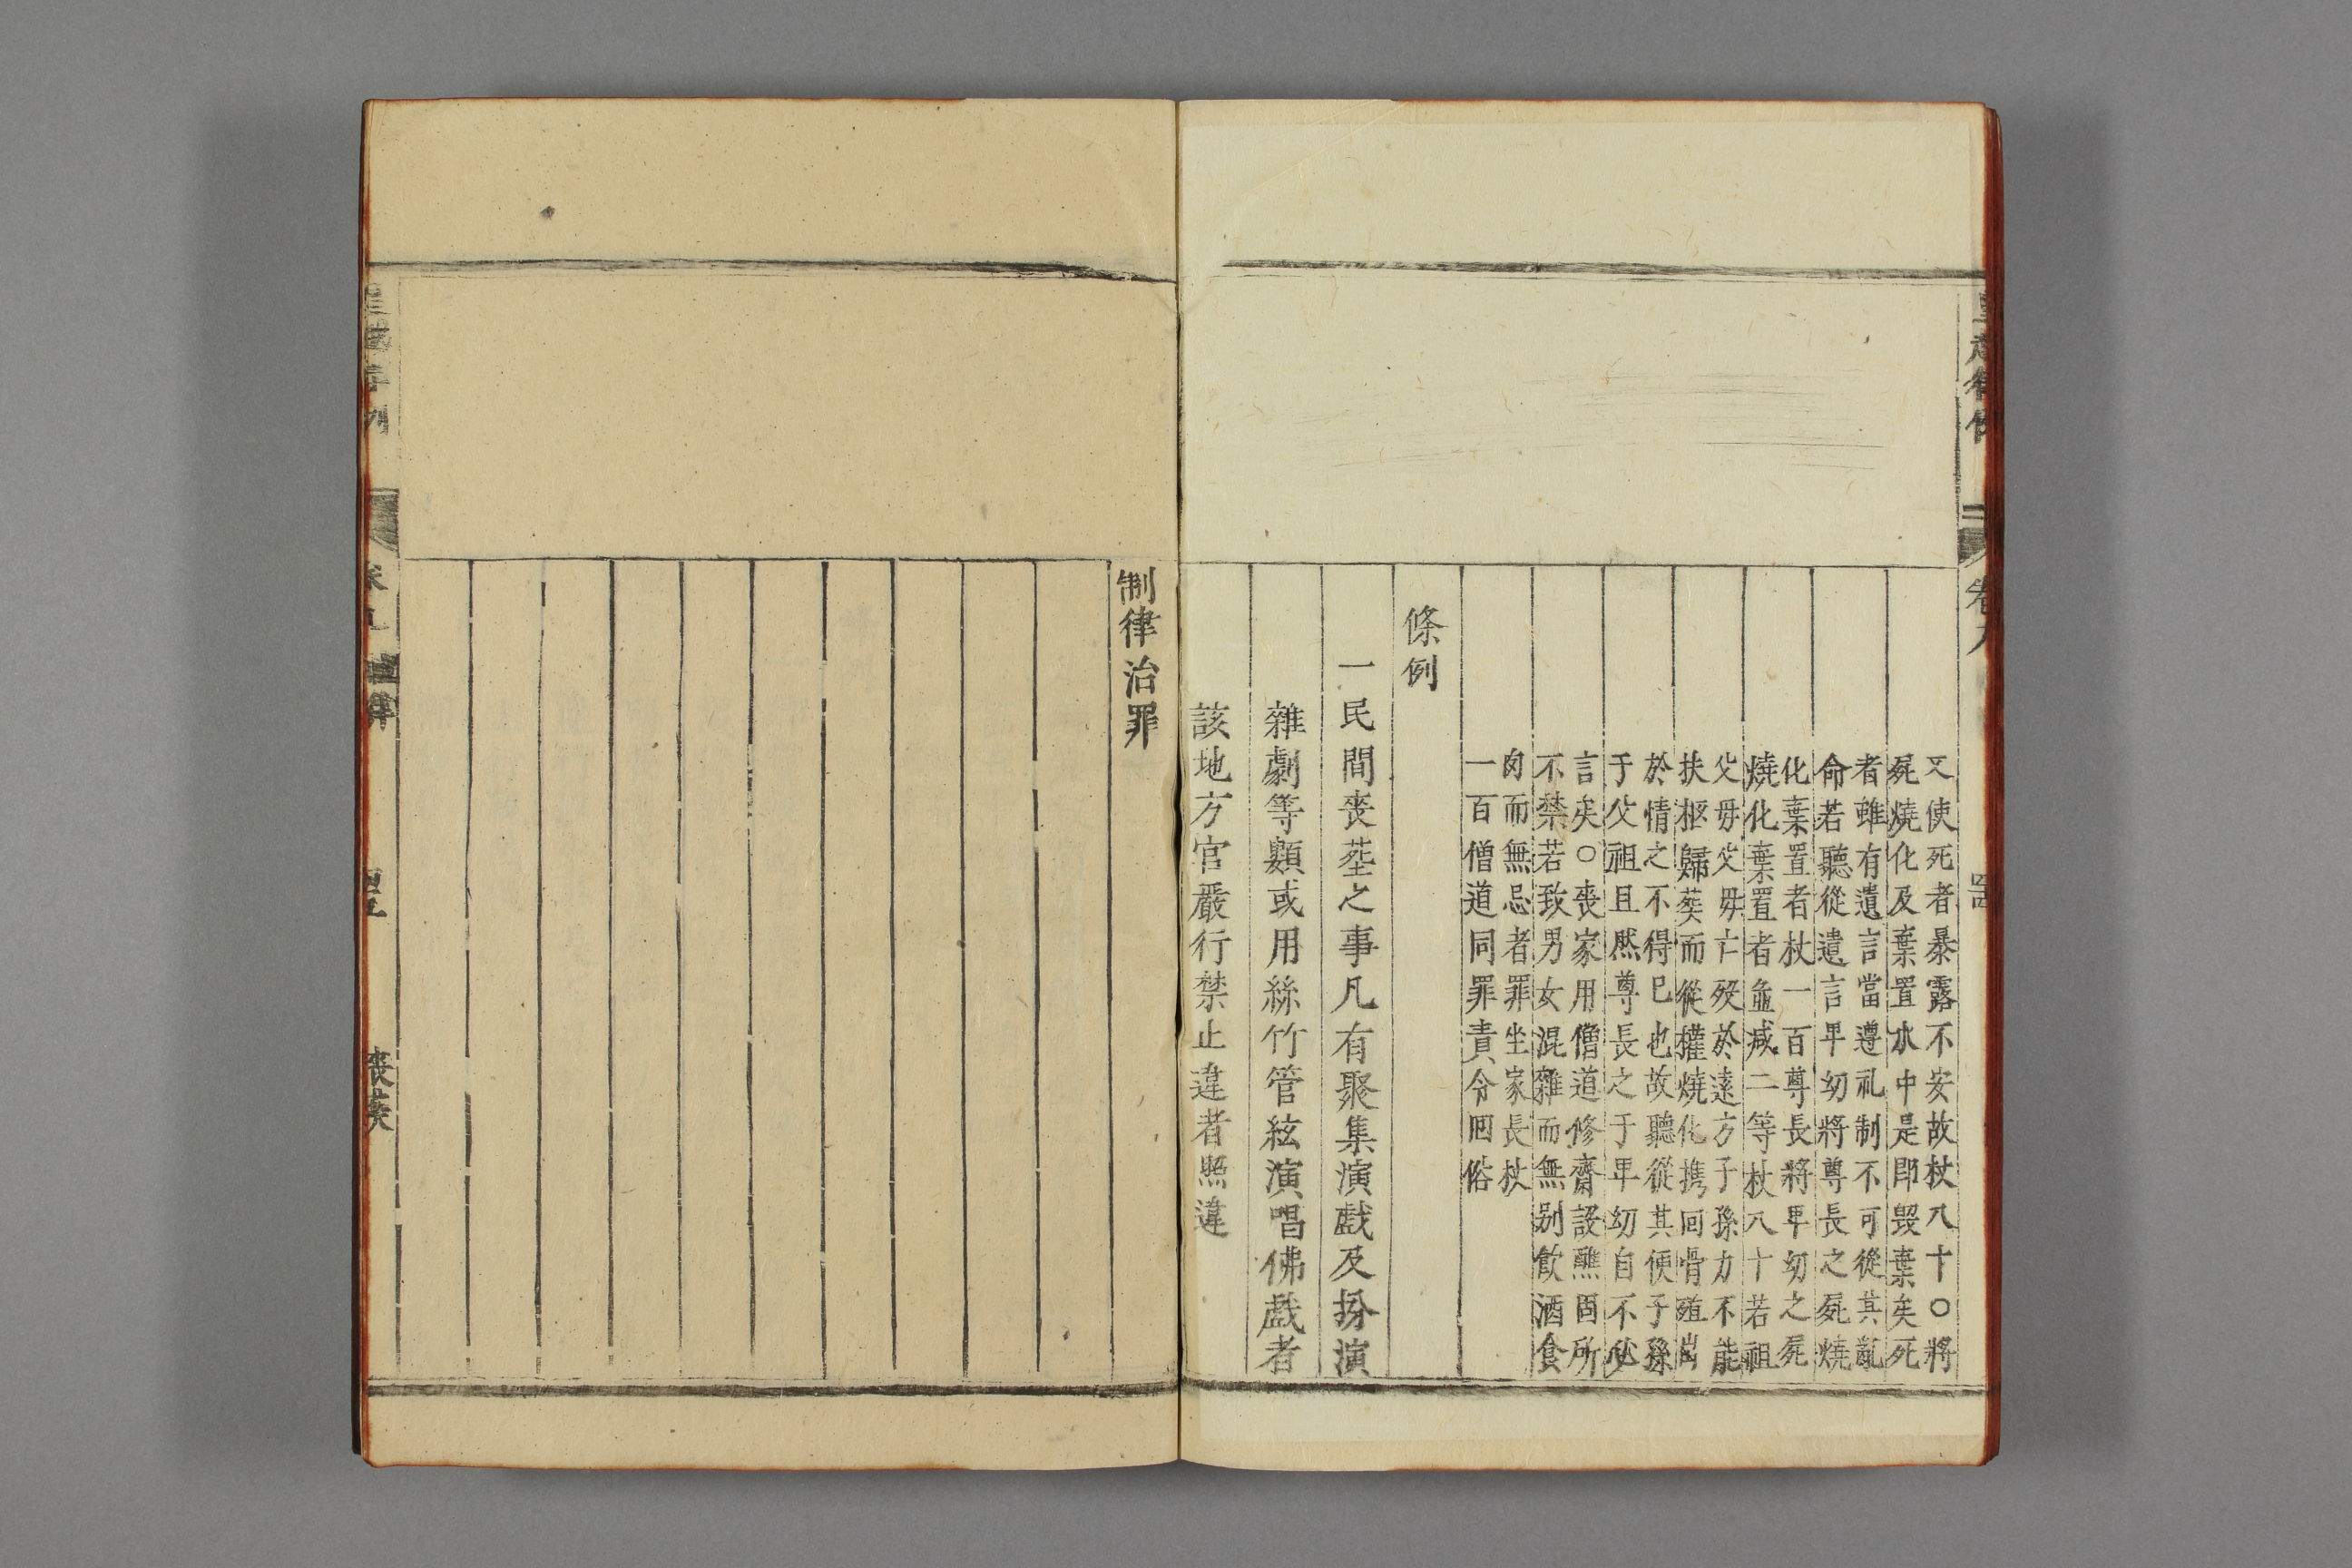 又使死者暴露不安故杖八十○將
屍燒化及棄置水中是即毀棄矣死
者雖有遺言當遵礼制不可從其亂
命若聽從遺言卑幼將尊長之屍燒
化棄置者杖一百尊長將卑幼之屍
燒化棄置者並减二等杖八十若祖
父母父母亡殁於遠方子孫力不能
扶柩歸葵而從權燒化携回骨殖尚
於情之不得已也故聽從其便子孫
于父祖且然尊長之于卑幼自不必
言矣○丧家用僧道修齋設醮固所
不禁若致男女混雜而無别飲酒食
肉而無忌者罪坐家長杖
一百僧道同罪責令囘俗
條例
一民間丧塟之事凡有聚集演戲及扮演
雜劇等類或用絲竹管絃演唱佛戲者
該地方官嚴行禁止違者照違
制律治罪